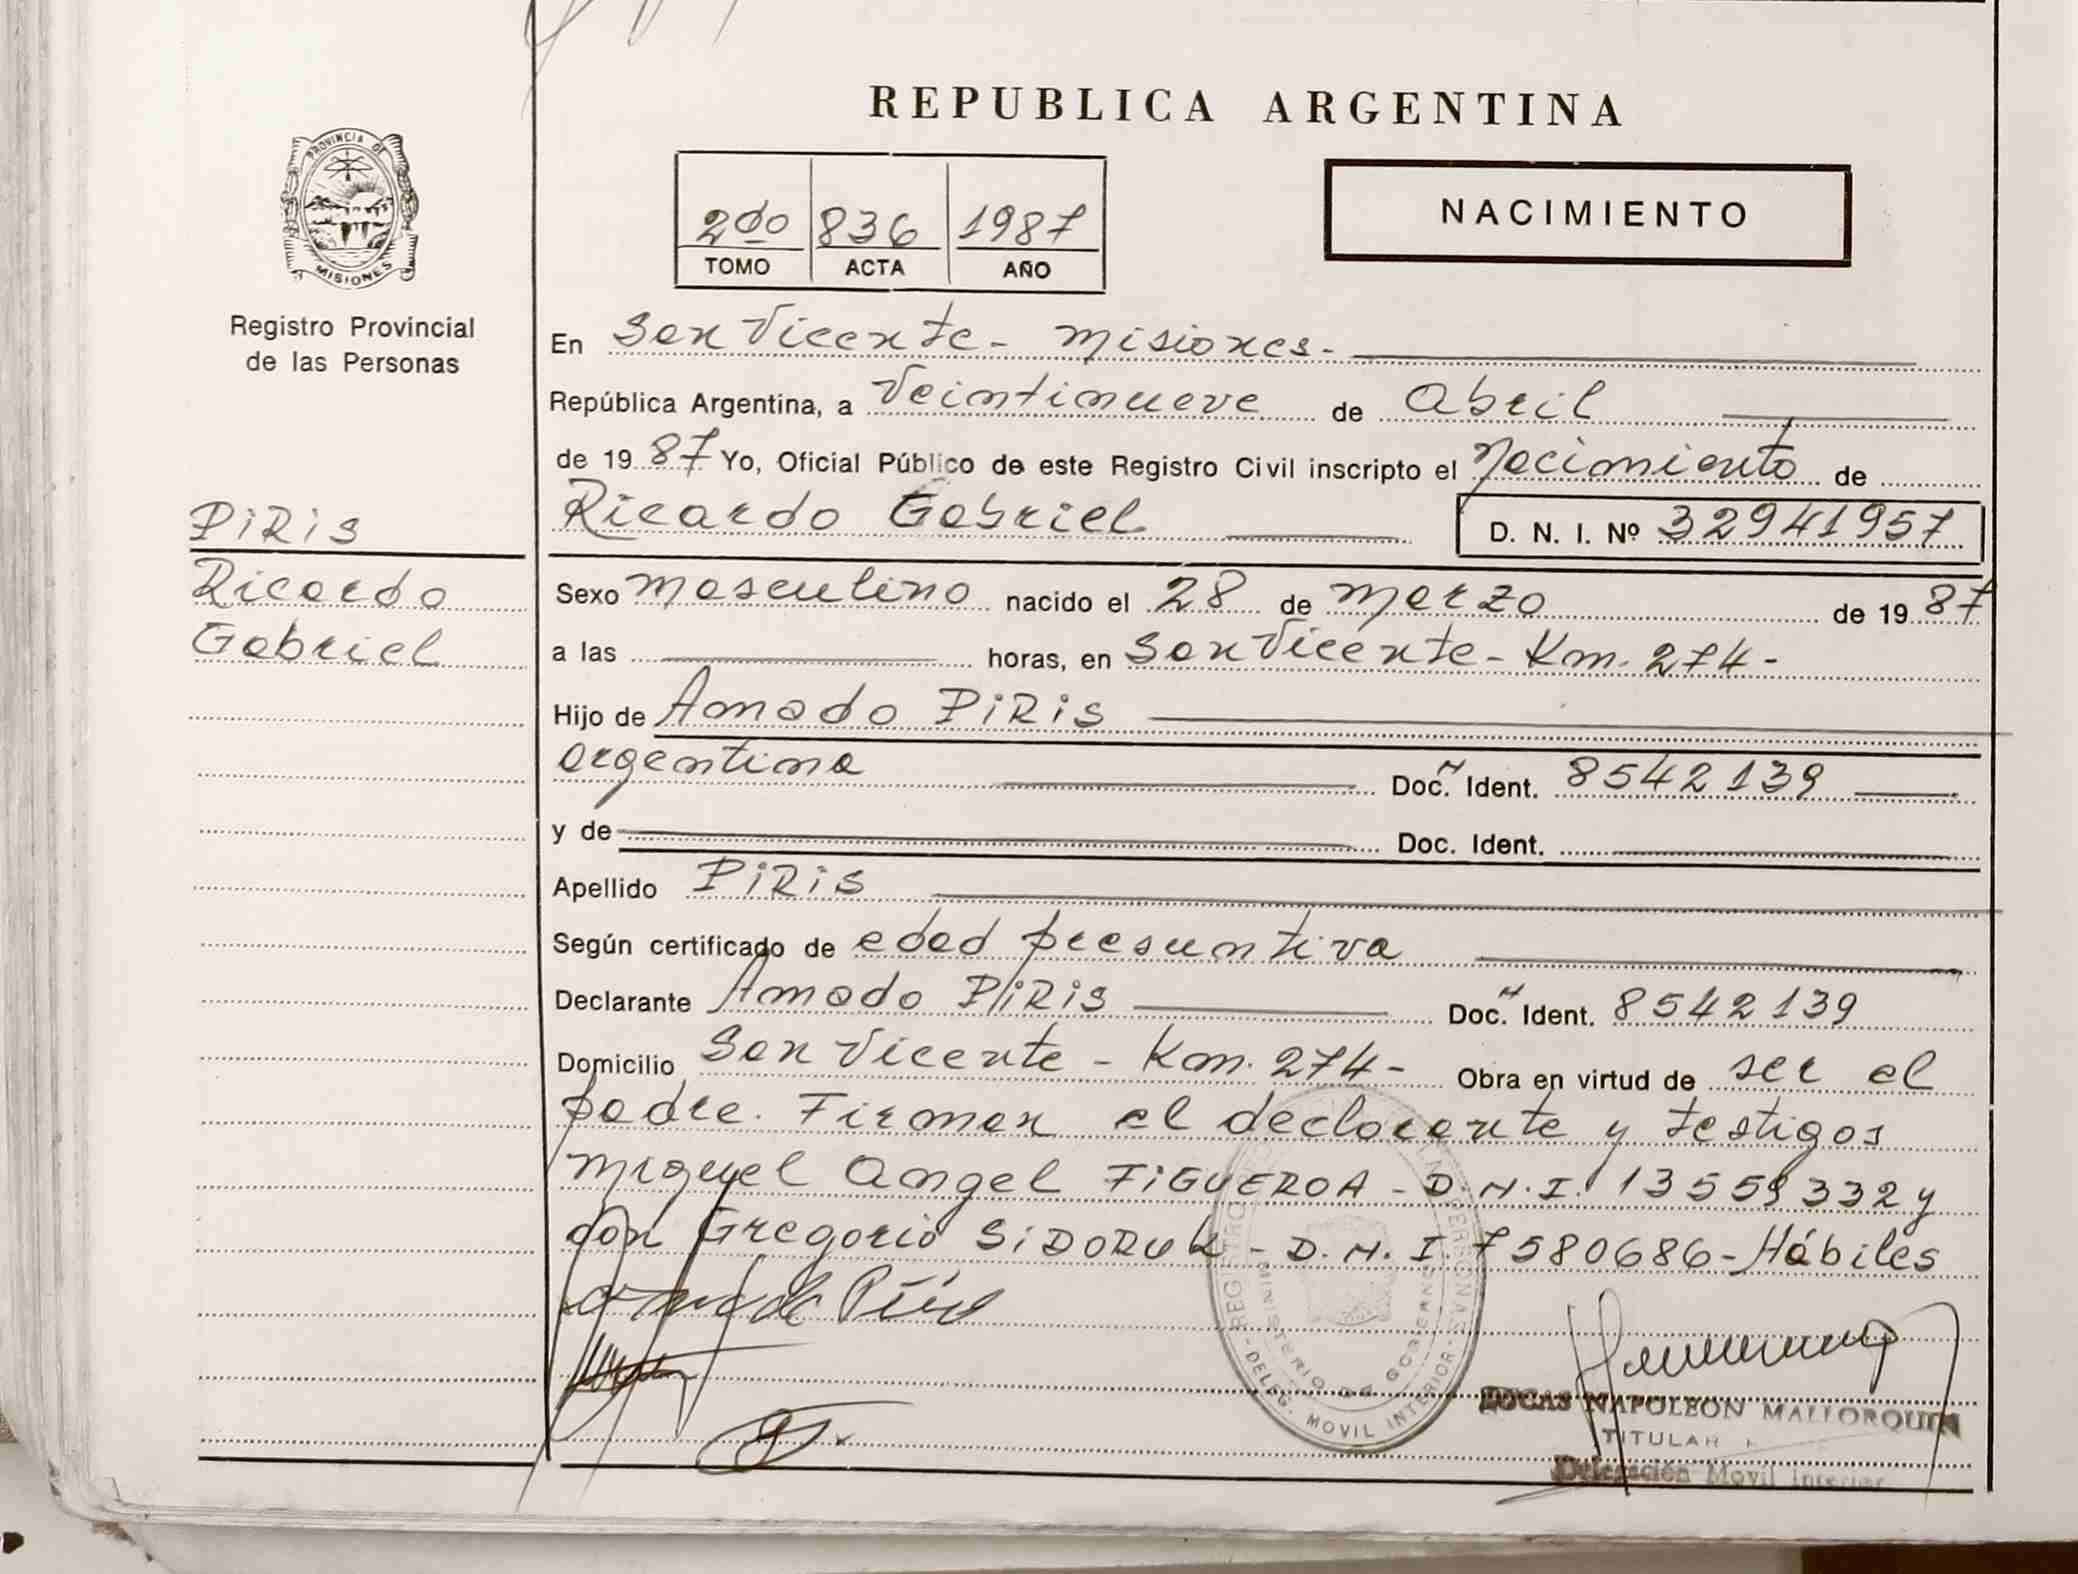 REPUBLICA ARGENTINA
PROVINCIA DE
MISIONES
Registro Provincial
de las Personas
2do 836 1987
TOMO ACTA AÑO
NACIMIENTO
En San Vicente - Misiones.-
República Argentina, a Veintinueve de Abril
de 1987 Yo, Oficial Público de este Registro Civil inscripto el Nacimiento de
PIRIS
Ricardo Gabriel
D. N. I. Nº 32941957
Ricardo
Gabriel
Sexo Masculino nacido el 28 de Marzo de 1987
a las horas, en San Vicente - Km. 274 -
Hijo de Amado PIRIS
argentina Doc. Ident. 8542139
y de Doc. Ident.
Apellido PIRIS
Según certificado de edad presuntiva
Declarante Amado PIRIS Doc. Ident. 8542139
Domicilio San Vicente - Km. 274 - Obra en virtud de ser el
padre. Firman el declarante y testigos
Miguel Angel FIGUEROA - D.N.I. 13559332 y
don Gregorio SIDORUK - D.N.I. 7580686 - Hábiles
Amado Piris
MINISTERIO DE GOBIERNO
DELEG. MOVIL INTERIOR
LUCAS NAPOLEON MALLORQUIN
TITULAR
Delegación Movil Interior